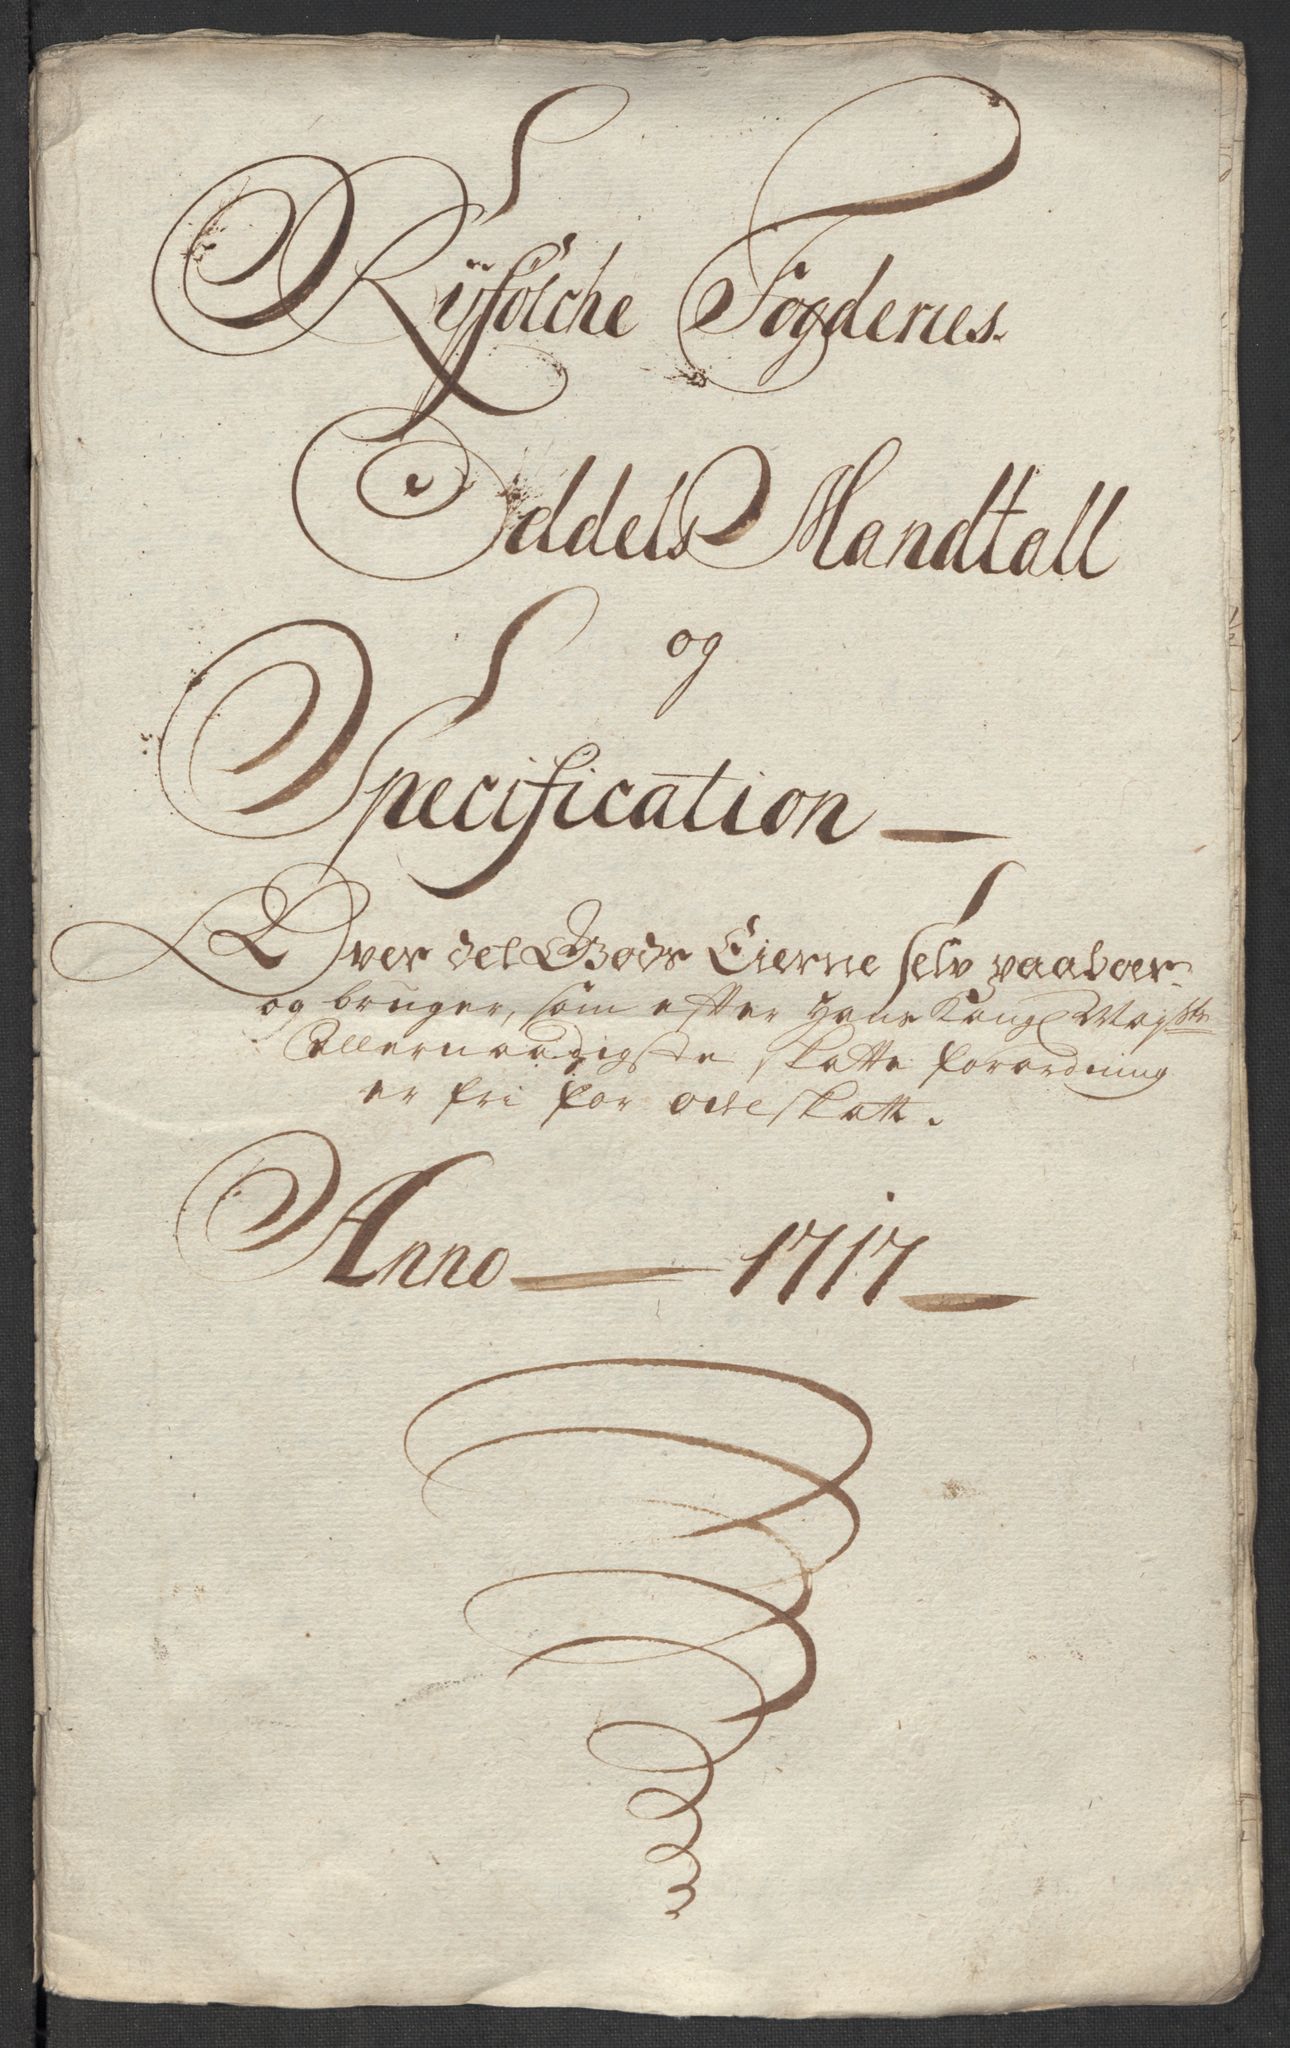 Ryfölche Fogderies
Oddels Mandtall
og
Specification
Over det Gods Eierne selv paaboer
og bruger, som efter Hans Kongl Mayst:
Allernaadigste skatte forordning
er fri for ode skatt.
Anno 1717